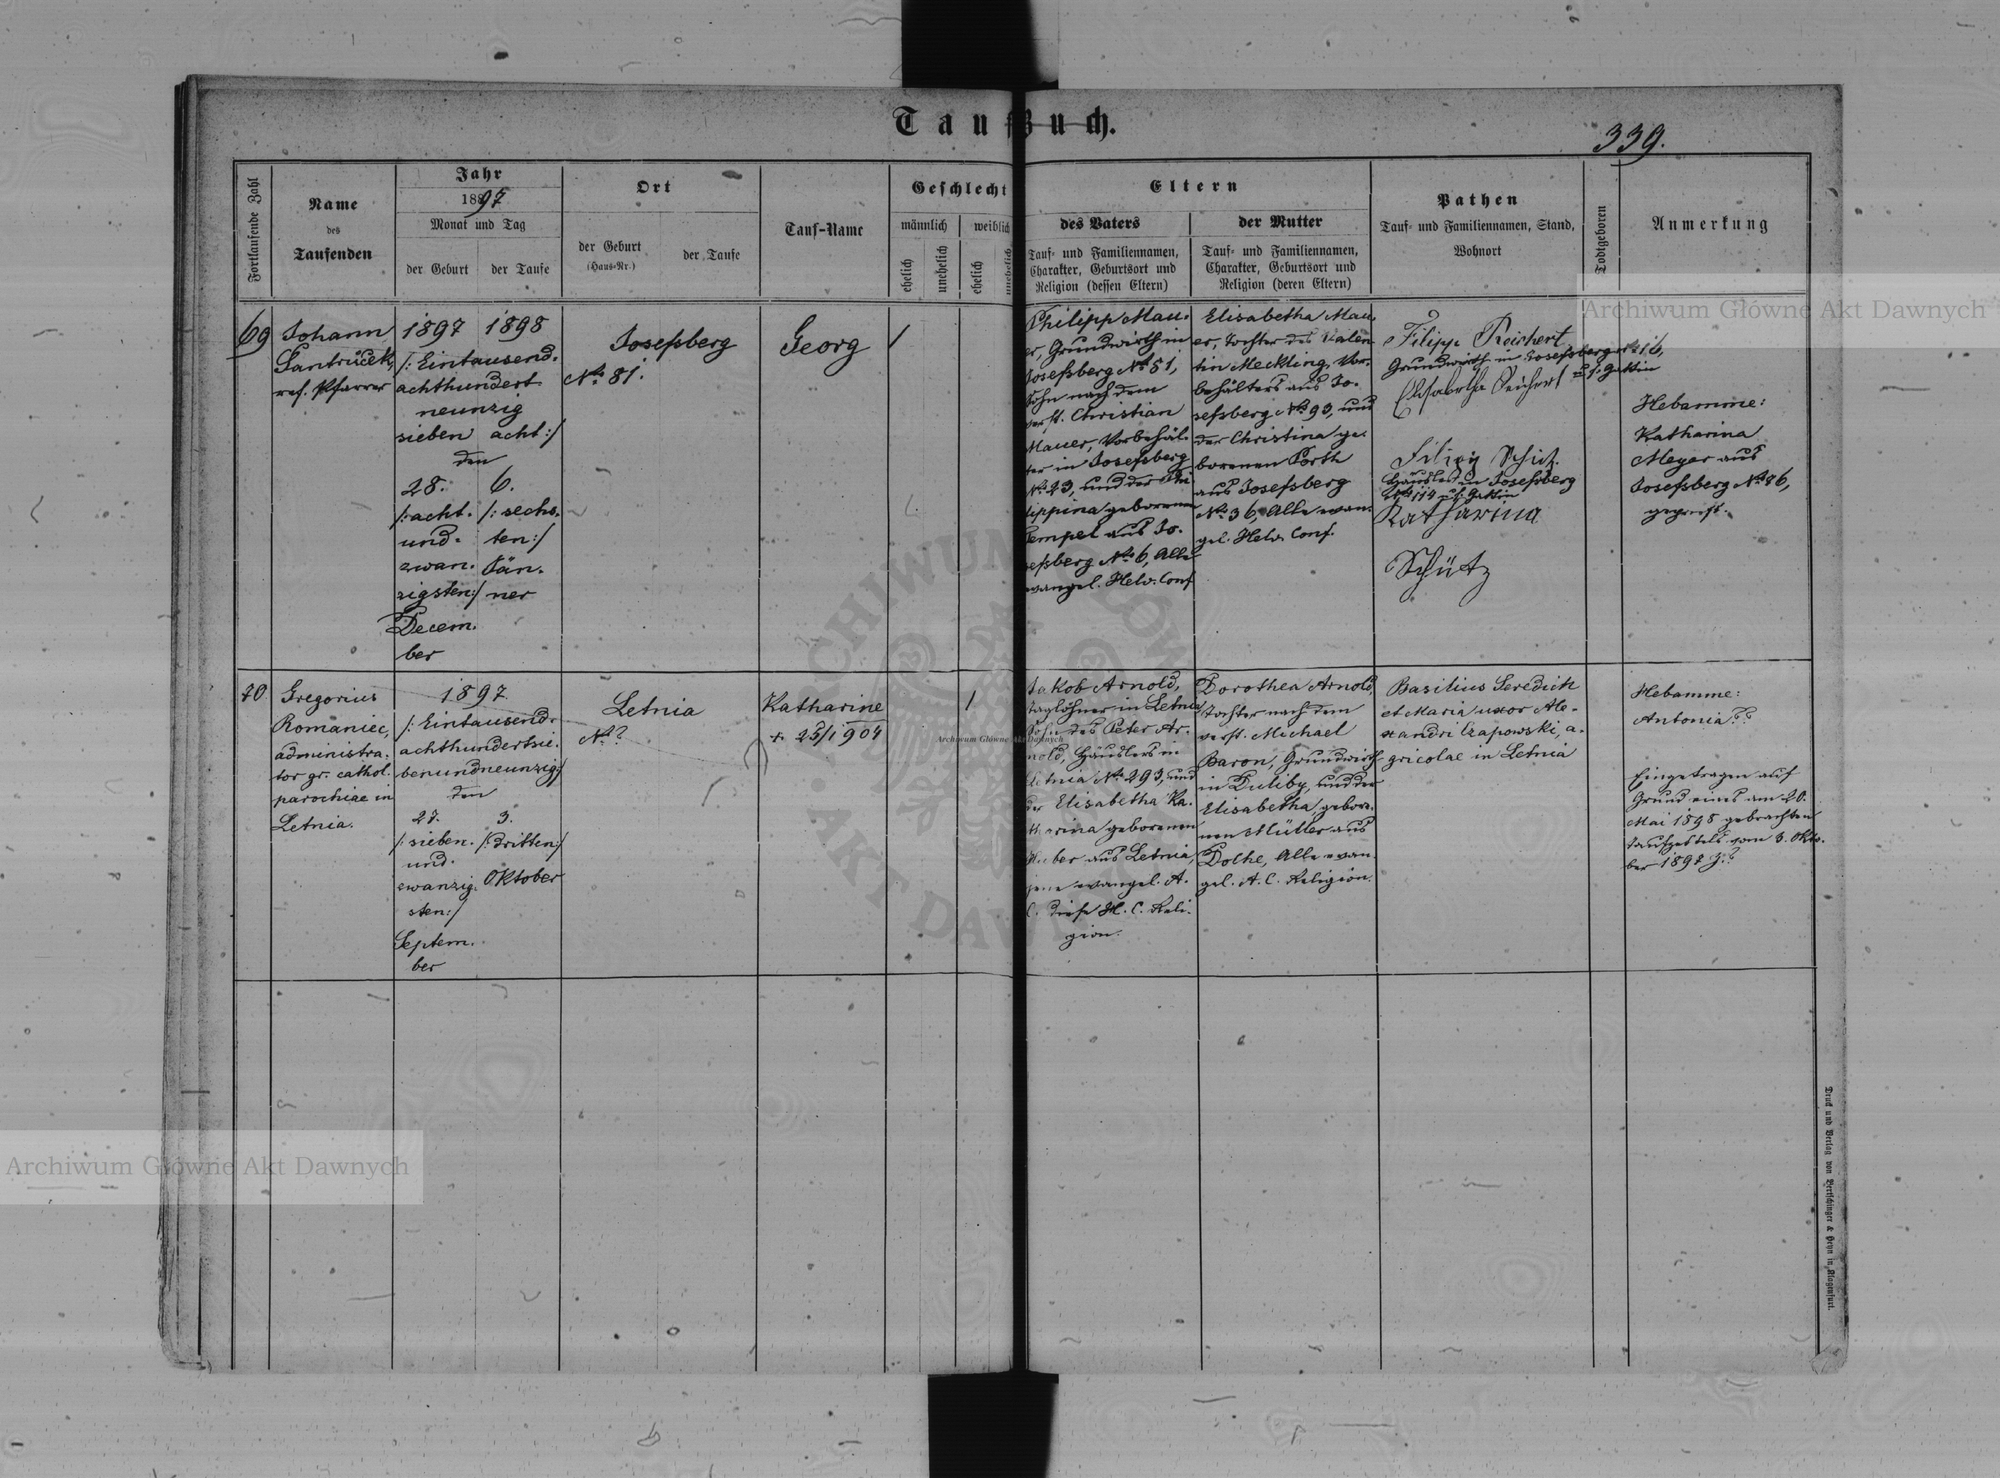 Taufbuch.
339.
Fortlaufende Zahl
Name
des
Taufenden
Jahr
1897
Monat und Tag
der Geburt
der Taufe
Ort
der Geburt
(Haus-Nr.)
der Taufe
Tauf-Name
Geschlecht
männlich
weiblich
ehelich
unehelich
ehelich
unehelich
Eltern
des Vaters
Tauf- und Familiennamen,
Charakter, Geburtsort und
Religion (dessen Eltern)
der Mutter
Tauf- und Familiennamen,
Charakter, Geburtsort und
Religion (deren Eltern)
Pathen
Tauf- und Familiennamen, Stand,
Wohnort
Todtgeboren
Anmerkung
69
Johann
Santrůček,
ref. Pfarrer
1897 1898
/: Eintausend-
achthundert
neunzig
sieben acht :/
den
28. 6.
/: acht- /: sechs-
und- ten :/
zwan- Jän-
zigsten :/ ner
Decem-
ber
Josefsberg
No 81.
Georg
1
Philipp Mau-
er, Grundwirth in
Josefsberg No 81,
Sohn nach dem
verst. Christian
Mauer, Vorbehäl-
ter in Josefsberg
No 23, und der Phi-
lippina geborenen
Tempel aus Jo-
sefsberg No 6, Alle
evangel. Helv. Conf
Elisabetha Mau-
er, Tochter des Valen-
tin Meckling, Vor-
behälters aus Jo-
sefsberg No 93, und
der Christina ge-
borenen Porth
aus Josefsberg
No 36, Alle evan-
gel. Helv. Conf.
Filipp Reichert
Grundwirth in Josefsberg No 16,
u. s. Gattin
Elisabetha Reichert
Filipp Schütz
Häusler in Josefsberg
No 114 u. s. Gattin
Katharina
Schütz
Hebamme:
Katharina
Meyer aus
Josefsberg No 86,
geprüft.
70
Gregorius
Romaniec,
administra-
tor gr. cathol.
parochiae in
Letnia.
1897
/: Eintausend-
achthundertsie-
benundneunzig :/
den
27. 3.
/: sieben- /: dritten :/
und-
zwanzig- Oktober
sten :/
Septem-
ber
Letnia
No ?
Katharine
+ 25/1 904
1
Jakob Arnold,
Taglöhner in Letnia
Sohn des Peter Ar-
nold, Häuslers in
Letnia No 293, und
der Elisabetha Ka-
tharina geborenen
Huber aus Letnia,
jene evangel. A.
C. diese H. C. Reli-
gion.
Dorothea Arnold,
Tochter nach dem
verst. Michael
Baron, Grundwirth
in Duliby, und der
Elisabetha, gebore-
nen Müller aus
Dolhe, Alle evan-
gel. A. C. Religion.
Basilius Seredich
et Maria uxor Ale-
xandri Czapowski, a-
gricolae in Letnia
Hebamme:
Antonia ??
Eingetragen auf
Grund eines am 20.
Mai 1898 gebrachten
Taufzettels vom 3. Okto-
ber 1897 Z. ?
Druck und Verlag von Bertschinger & Heyn in Klagenfurt.
Archiwum Główne Akt Dawnych
Archiwum Główne Akt Dawnych
Archiwum Główne Akt Dawnych